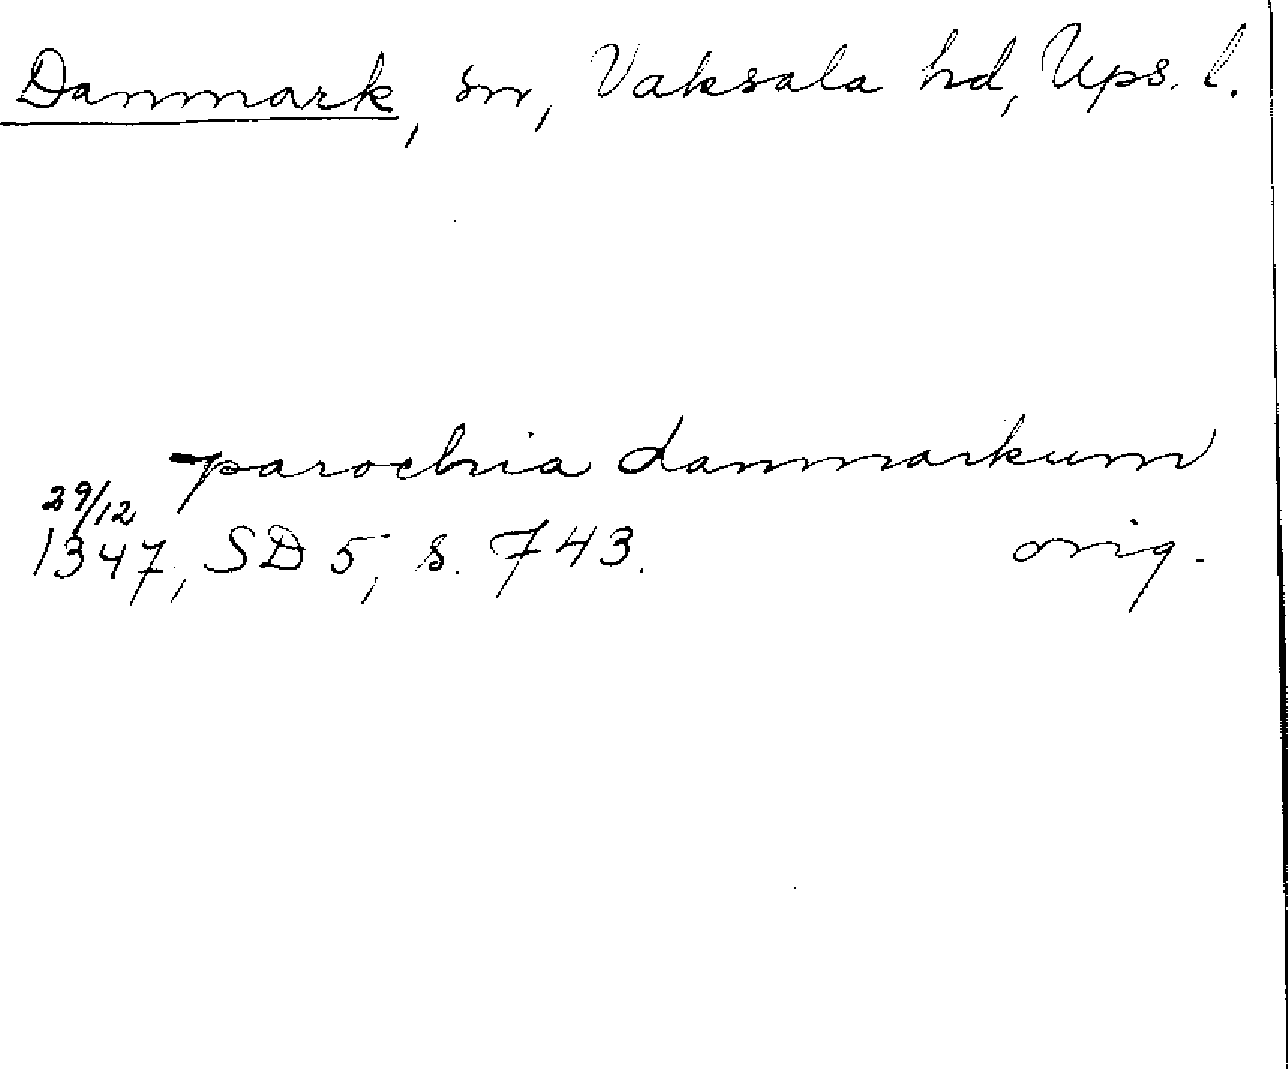 Danmark, sn, Vaksala hd, Ups. l.
parochia danmarkum
29/12
1347, SD 5, s. 743. orig.